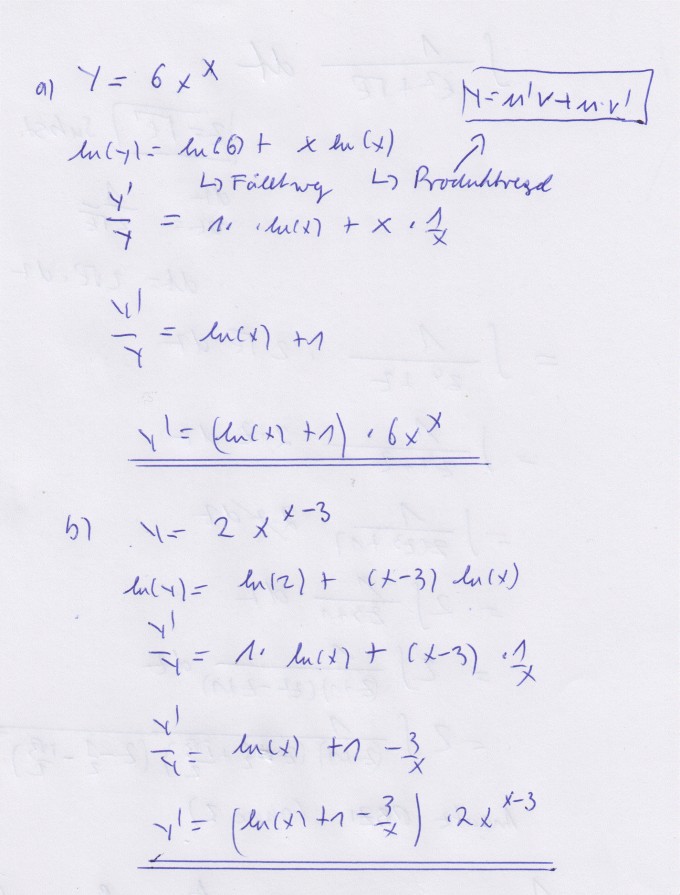 a) y = 6x^x
y = u'v + u·v'
ln(y) = ln(6) + x ln(x)
↳ Fällt weg ↳ Produktregel
y'/y = 1· ·ln(x) + x · 1/x
y'/y = ln(x) + 1
y' = (ln(x) + 1) · 6x^x
b) y = 2x^(x-3)
ln(y) = ln(2) + (x-3) ln(x)
y'/y = 1· ln(x) + (x-3) · 1/x
y'/y = ln(x) + 1 - 3/x
y' = (ln(x) + 1 - 3/x) · 2x^(x-3)